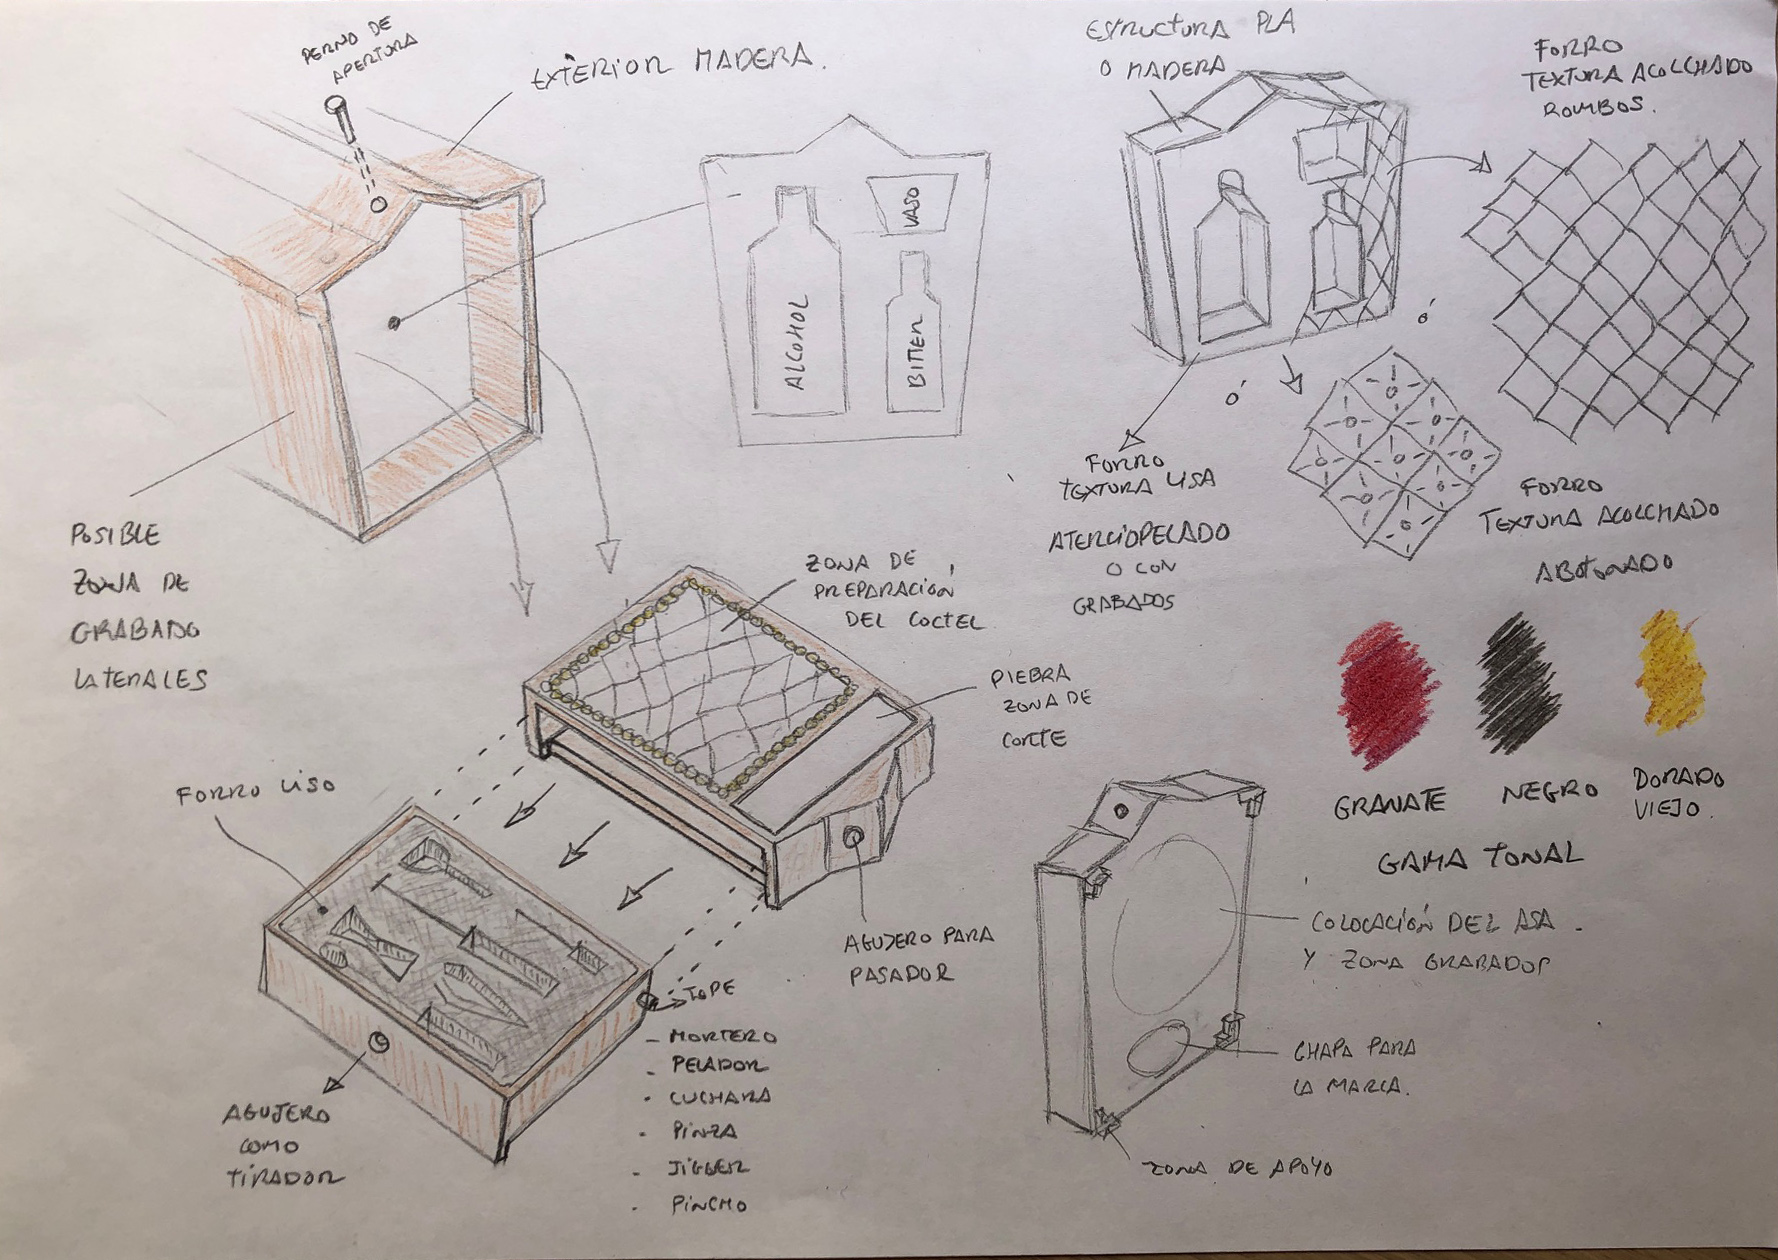 PERNO DE
APERTURA
EXTERIOR MADERA.
ESTRUCTURA PLA
O MADERA
FORRO
TEXTURA ACOLCHADO
ROMBOS.
VASO
ALCOHOL
BITTER
Ó
Ó
FORRO
TEXTURA LISA
ATERCIOPELADO
O CON
GRABADOS
FORRO
TEXTURA ACOLCHADO
ABOTONADO
POSIBLE
ZONA DE
GRABADO
LATERALES
ZONA DE
PREPARACIÓN
DEL COCTEL
PIEDRA
ZONA DE
CORTE
GRANATE
NEGRO
DORADO
VIEJO.
GAMA TONAL
FORRO LISO
AGUJERO PARA
PASADOR
TOPE
- MORTERO
- PELADOR
- CUCHARA
- PINZA
- JIGGER
- PINCHO
AGUJERO
COMO
TIRADOR
COLOCACIÓN DEL ASA.
Y ZONA GRABADOS
CHAPA PARA
LA MARCA.
ZONA DE APOYO